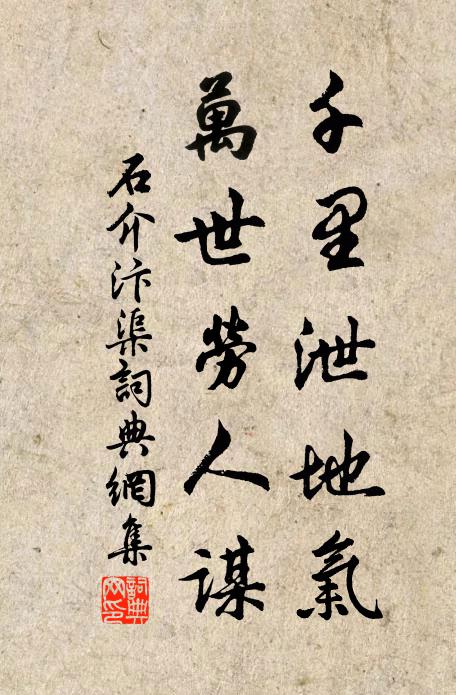 千里泄地氣
萬世勞人謀
石介汴渠詞典網集